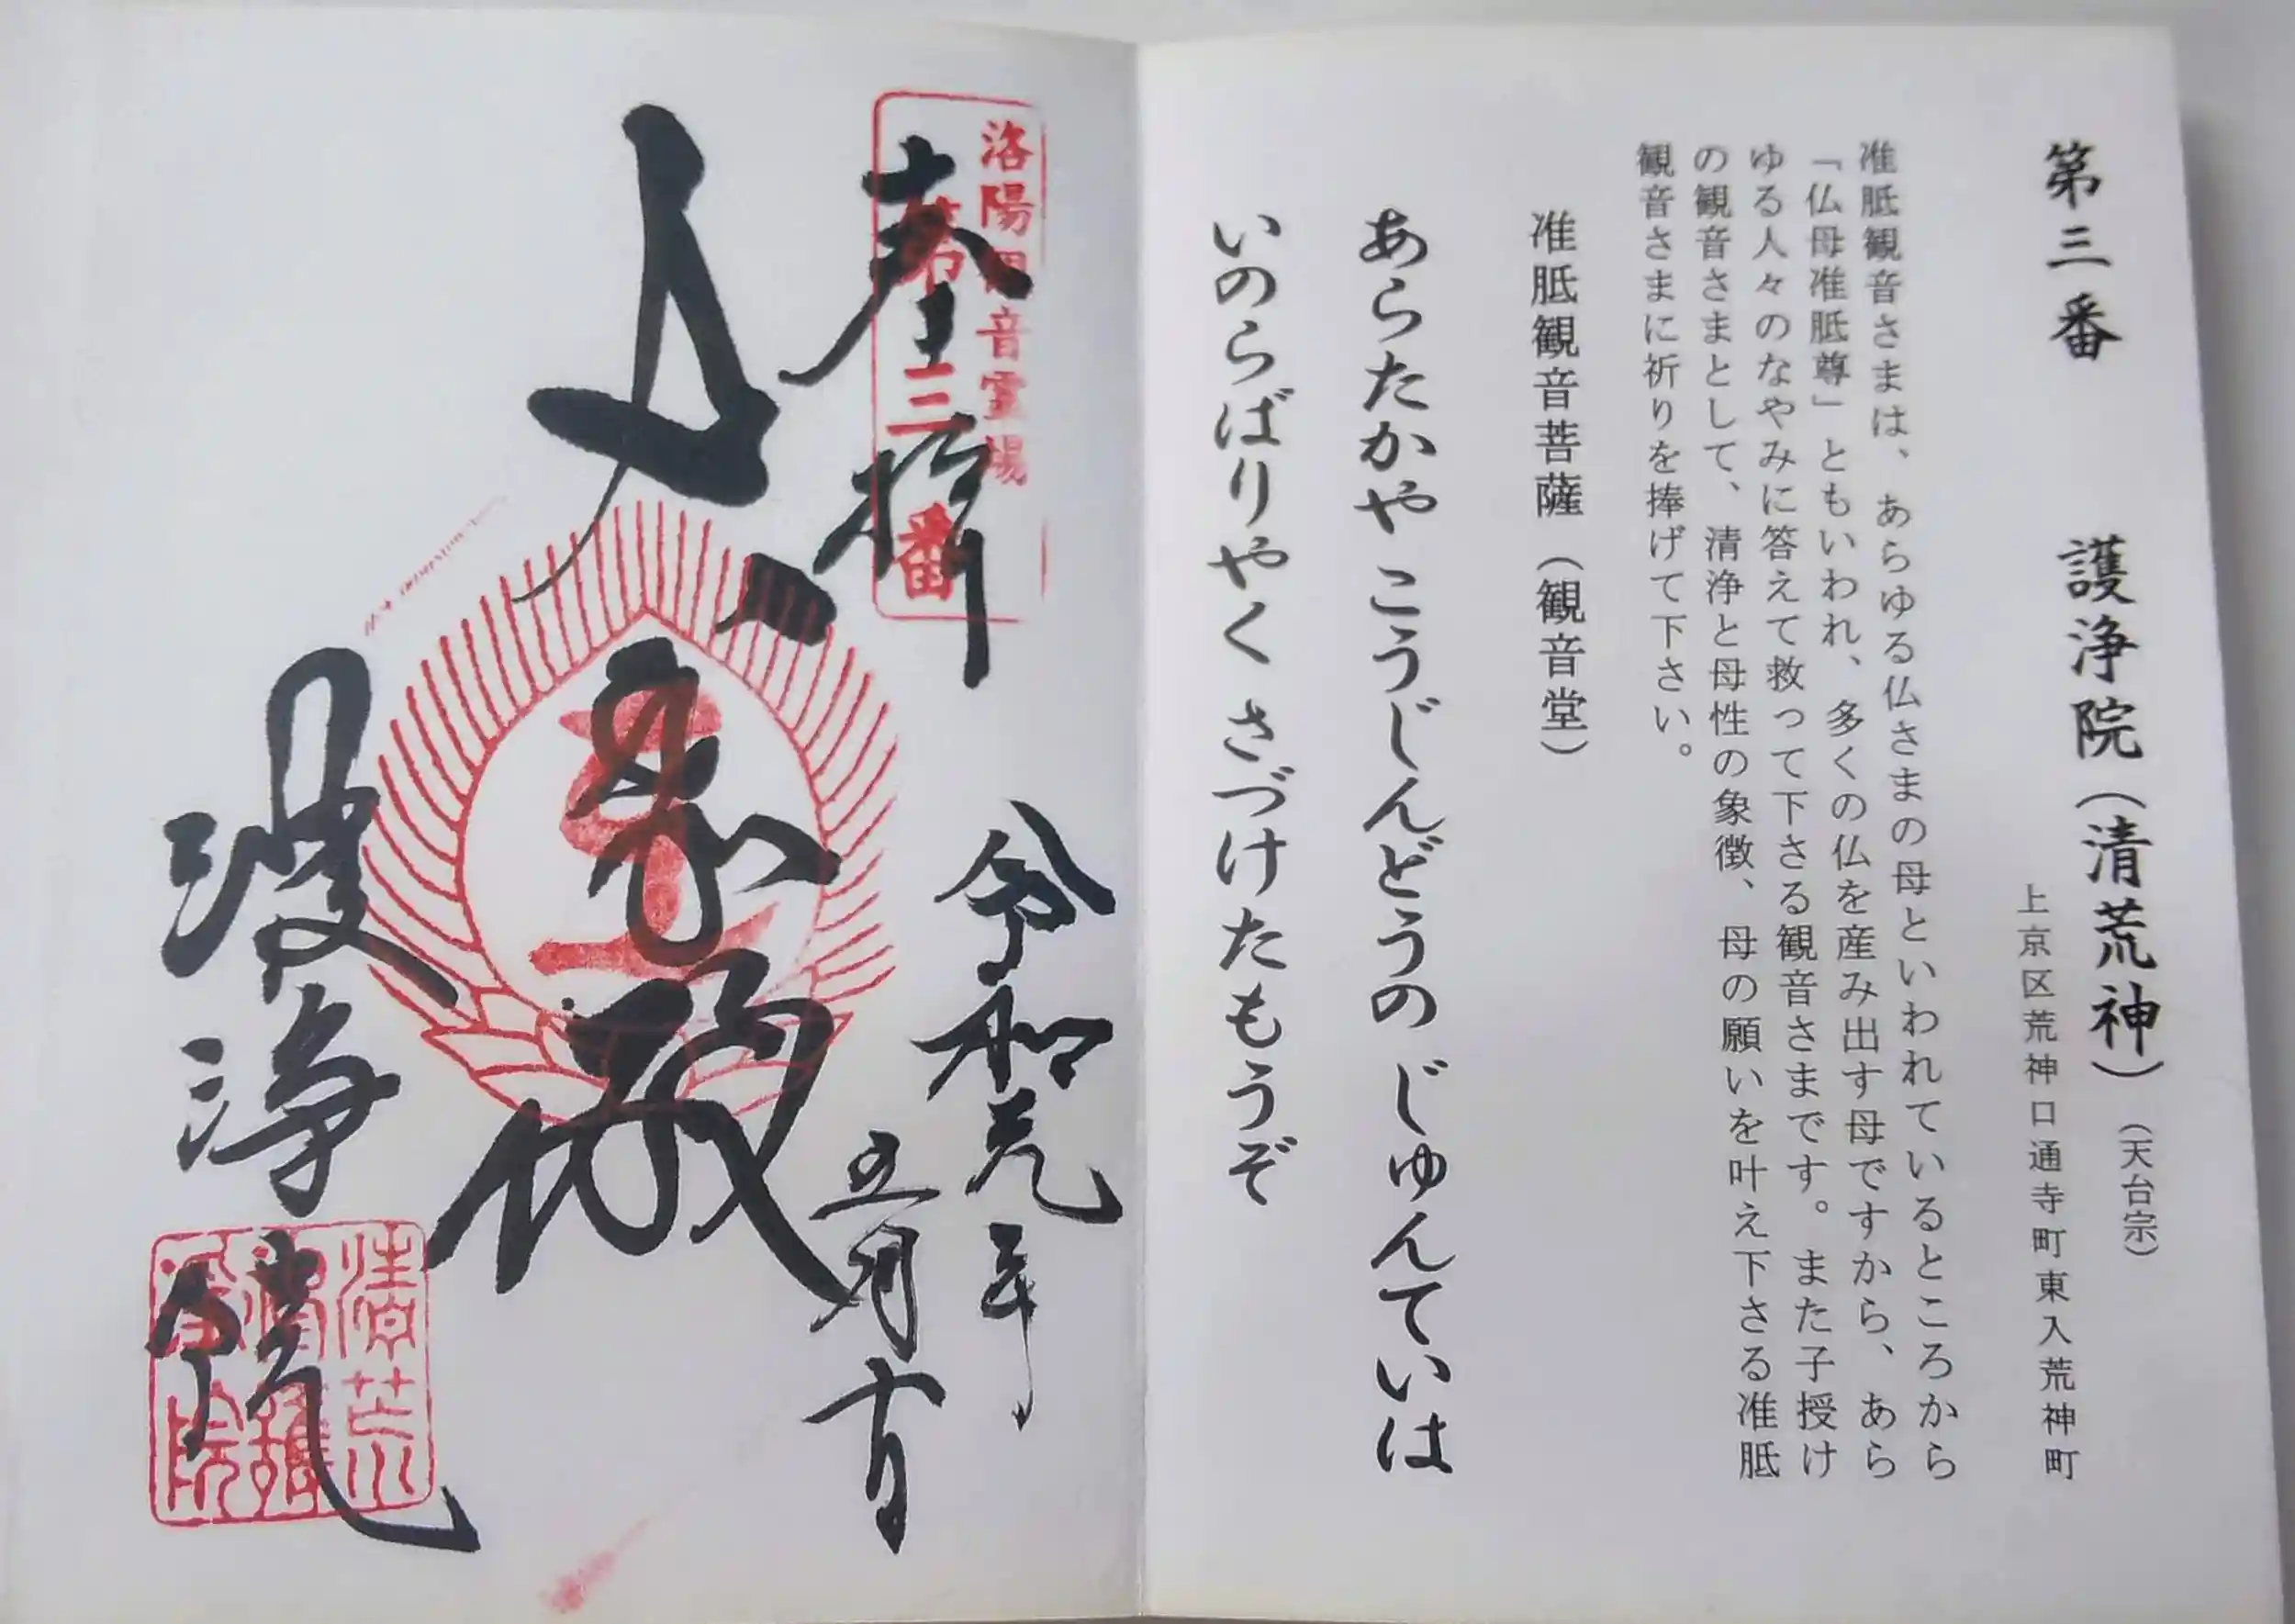 第三番 護浄院（清荒神）（天台宗）
上京区荒神口通寺町東入荒神町
准胝観音さまは、あらゆる仏さまの母といわれているところから
「仏母准胝尊」ともいわれ、多くの仏を産み出す母ですから、あら
ゆる人々のなやみに答えて救って下さる観音さまです。また子授け
の観音さまとして、清浄と母性の象徴、母の願いを叶え下さる准胝
観音さまに祈りを捧げて下さい。
准胝観音菩薩（観音堂）
あらたかや こうじんどうの じゅんていは
いのらばりやく さづけたもうぞ
洛陽観音霊場
第三番
奉拝
令和元年
五月
護浄院
清荒